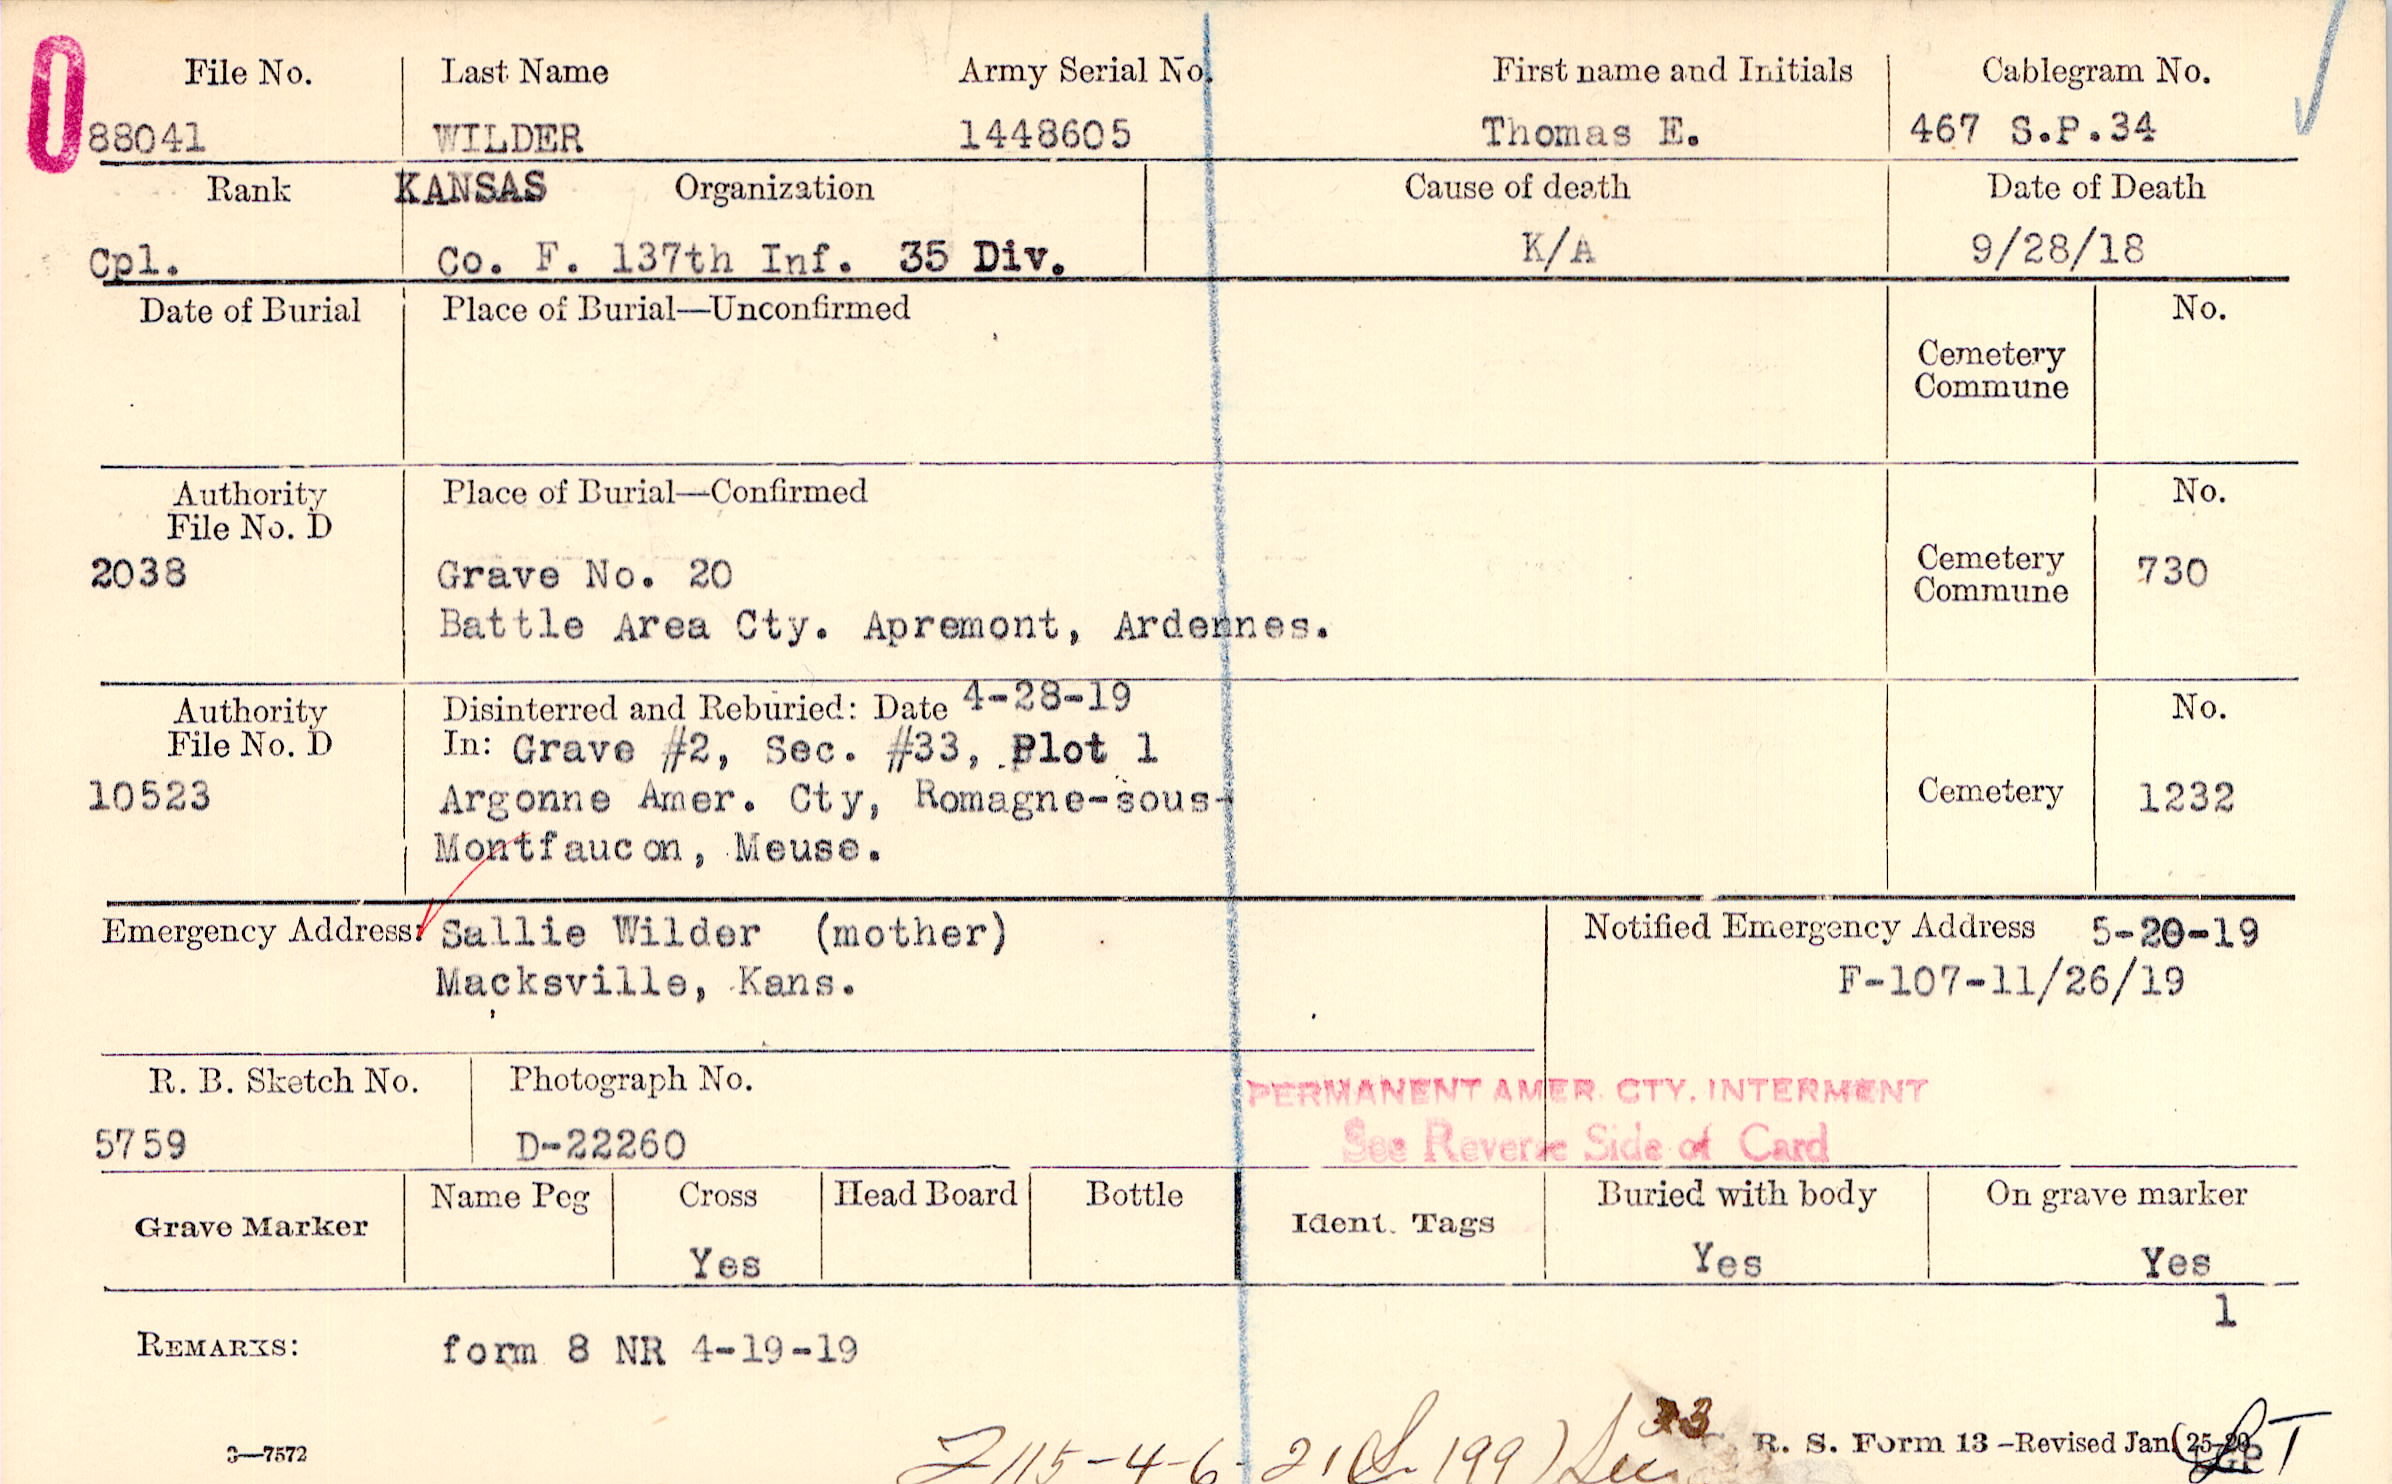 File No. Last Name Army Serial No. First name and Initials Cablegram No.
88041 WILDER 1448605 Thomas E. 467 S.P.34
Rank KANSAS Organization Cause of death Date of Death
Cpl. Co. F. 137th Inf. 35 Div. K/A 9/28/18
Date of Burial Place of Burial—Unconfirmed No.
Cemetery
Commune
Authority Place of Burial—Confirmed No.
File No. D
2038 Grave No. 20 Cemetery 730
Commune
Battle Area Cty. Apremont, Ardennes.
Authority Disinterred and Reburied: Date 4-28-19 No.
File No. D In: Grave #2, Sec. #33, Plot 1
10523 Argonne Amer. Cty, Romagne-sous- Cemetery 1232
Montfaucon, Meuse.
Emergency Address: Sallie Wilder (mother) Notified Emergency Address 5-20-19
Macksville, Kans. F-107-11/26/19
R. B. Sketch No. Photograph No. PERMANENT AMER. CTY. INTERMENT
5759 D-22260 See Reverse Side of Card
Grave Marker Name Peg Cross Head Board Bottle Ident. Tags Buried with body On grave marker
Yes Yes Yes
1
REMARKS: form 8 NR 4-19-19
33
3—7572 R. S. Form 13—Revised Jan.